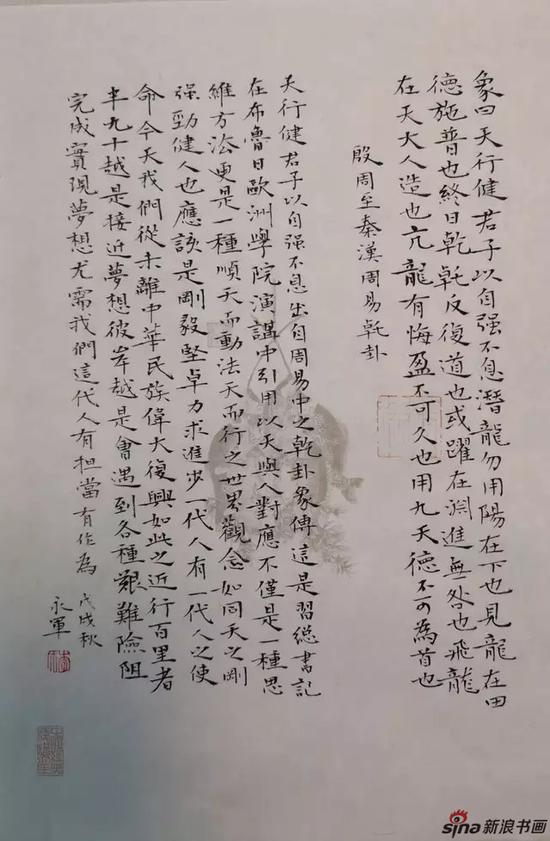 象曰天行健君子以自强不息潛龍勿用陽在下也見龍在田
德施普也終日乾乾反復道也或躍在淵進無咎也飛龍
在天大人造也亢龍有悔盈不可久也用九天德不可為首也
殷周至秦漢周易乾卦
天行健君子以自强不息出自周易中之乾卦象傳這是習總書記
在布魯日歐洲學院演講中引用以天與人對應不僅是一種思
維方法更是一種順天而動法天而行之世界觀念如同天之剛
强勁健人也應該是剛毅堅卓力求進步一代人有一代人之使
命今天我們從未離中華民族偉大復興如此之近行百里者
半九十越是接近夢想彼岸越是會遇到各種艱難險阻
完成實現夢想尤需我們這代人有担當有作為 戊戌秋
永軍
sina新浪书画